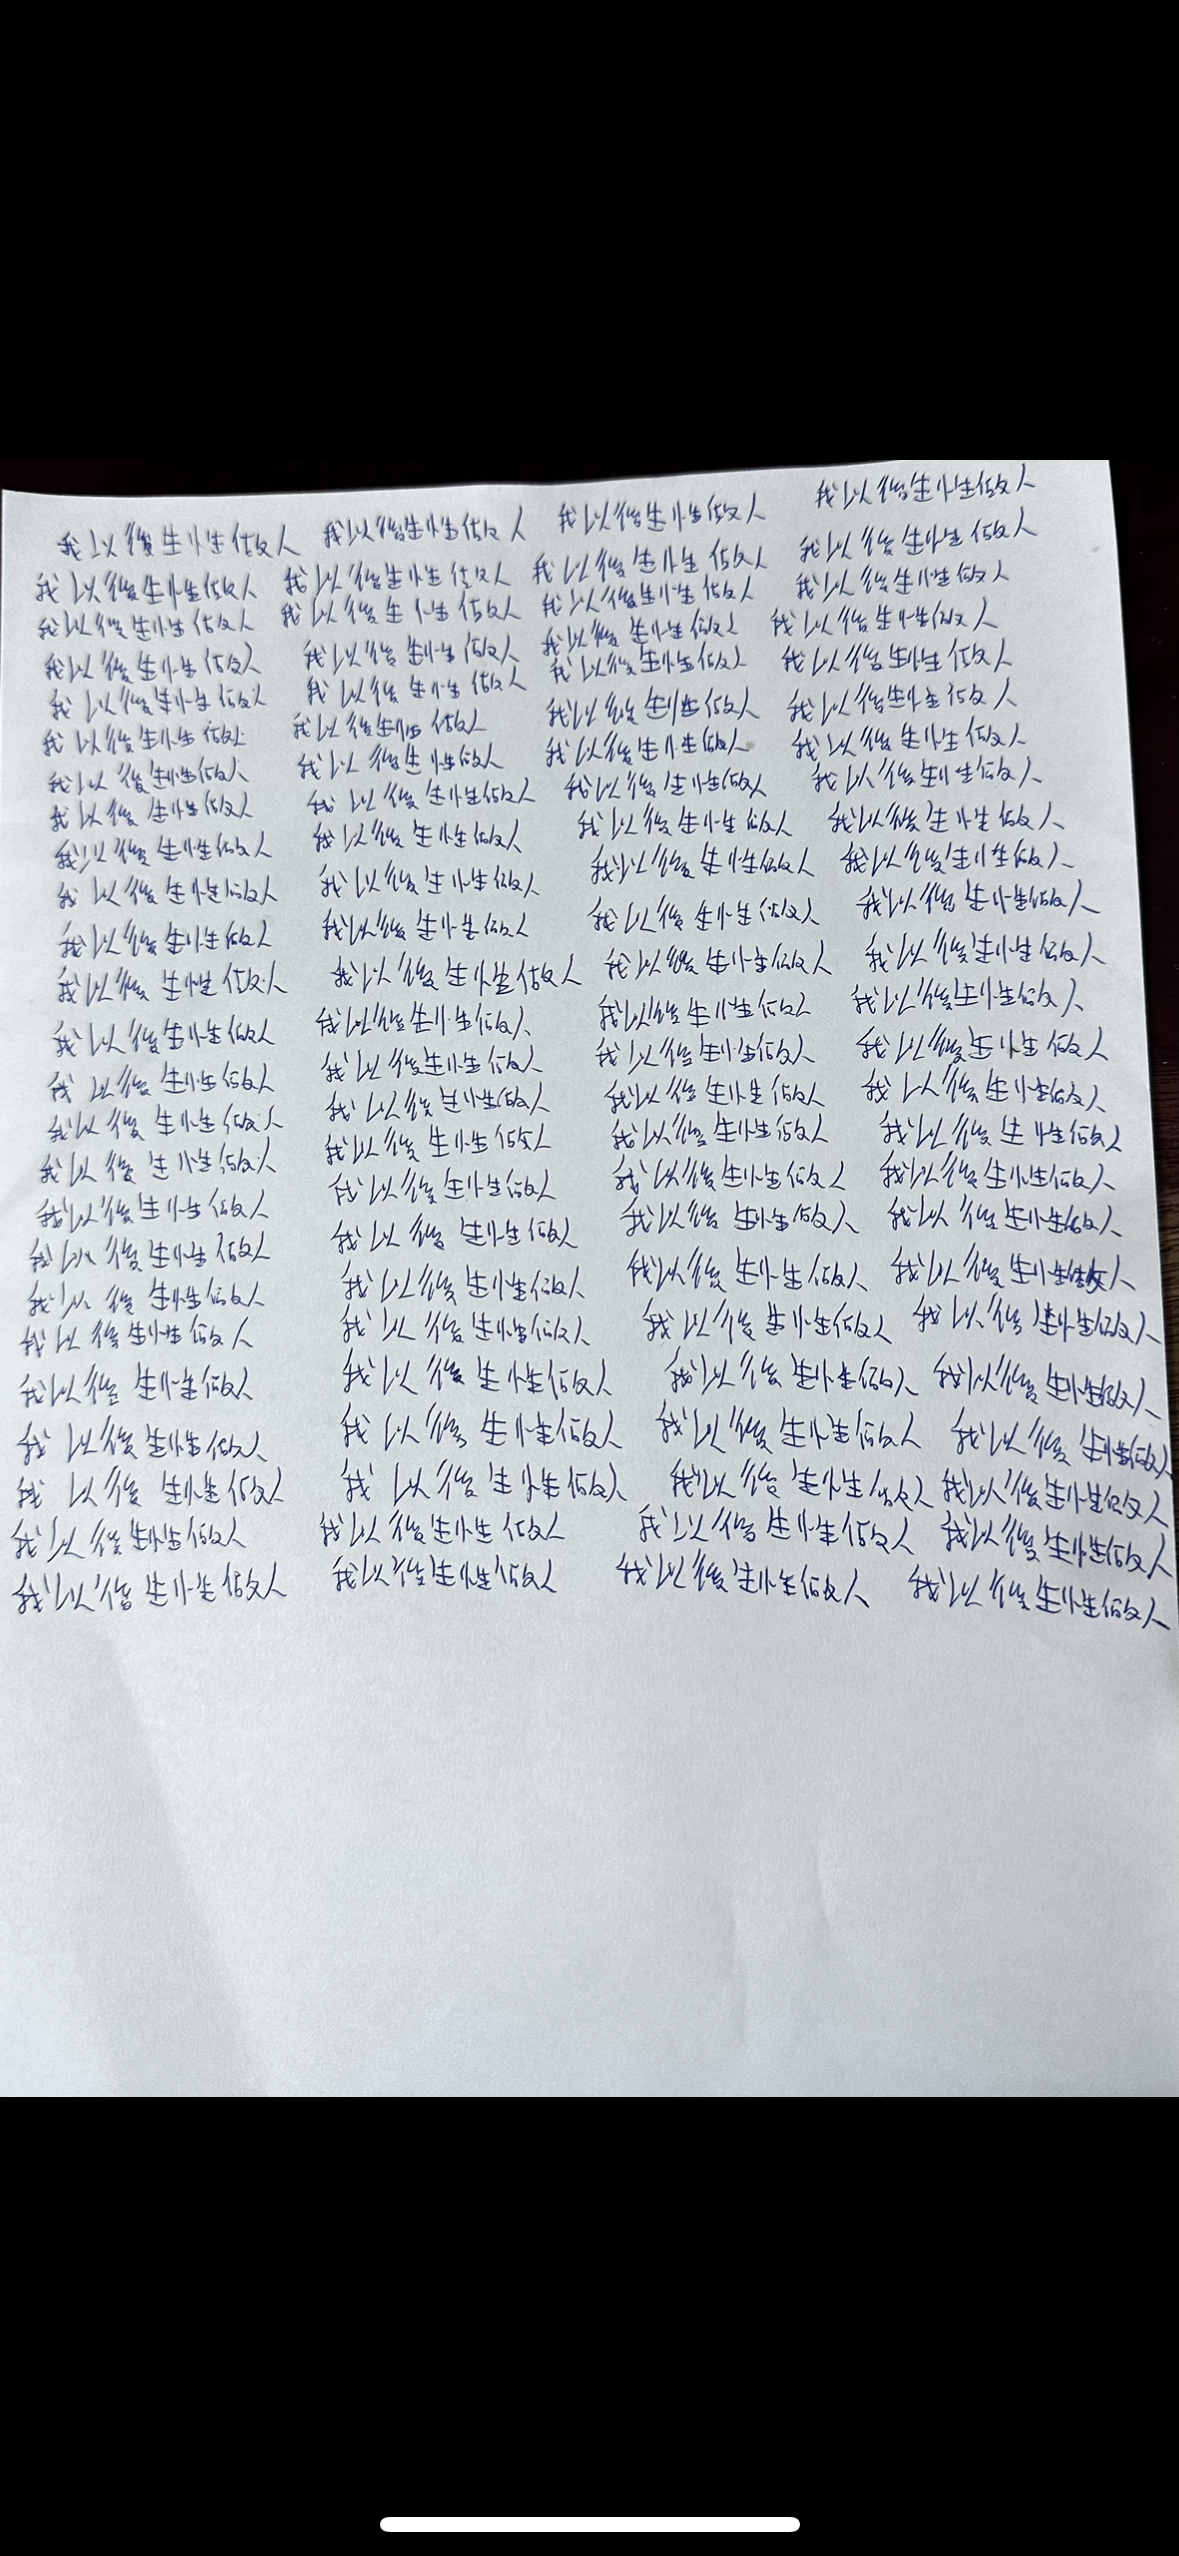 我以後生性做人 我以後生性做人 我以後生性做人 我以後生性做人
我以後生性做人 我以後生性做人 我以後生性做人 我以後生性做人
我以後生性做人 我以後生性做人 我以後生性做人 我以後生性做人
我以後生性做人 我以後生性做人 我以後生性做人 我以後生性做人
我以後生性做人 我以後生性做人 我以後生性做人 我以後生性做人
我以後生性做人 我以後生性做人 我以後生性做人 我以後生性做人
我以後生性做人 我以後生性做人 我以後生性做人 我以後生性做人
我以後生性做人 我以後生性做人 我以後生性做人 我以後生性做人
我以後生性做人 我以後生性做人 我以後生性做人 我以後生性做人
我以後生性做人 我以後生性做人 我以後生性做人 我以後生性做人
我以後生性做人 我以後生性做人 我以後生性做人 我以後生性做人
我以後生性做人 我以後生性做人 我以後生性做人 我以後生性做人
我以後生性做人 我以後生性做人 我以後生性做人 我以後生性做人
我以後生性做人 我以後生性做人 我以後生性做人 我以後生性做人
我以後生性做人 我以後生性做人 我以後生性做人 我以後生性做人
我以後生性做人 我以後生性做人 我以後生性做人 我以後生性做人
我以後生性做人 我以後生性做人 我以後生性做人 我以後生性做人
我以後生性做人 我以後生性做人 我以後生性做人 我以後生性做人
我以後生性做人 我以後生性做人 我以後生性做人 我以後生性做人
我以後生性做人 我以後生性做人 我以後生性做人 我以後生性做人
我以後生性做人 我以後生性做人 我以後生性做人 我以後生性做人
我以後生性做人 我以後生性做人 我以後生性做人 我以後生性做人
我以後生性做人 我以後生性做人 我以後生性做人 我以後生性做人
我以後生性做人 我以後生性做人 我以後生性做人 我以後生性做人
我以後生性做人 我以後生性做人 我以後生性做人 我以後生性做人